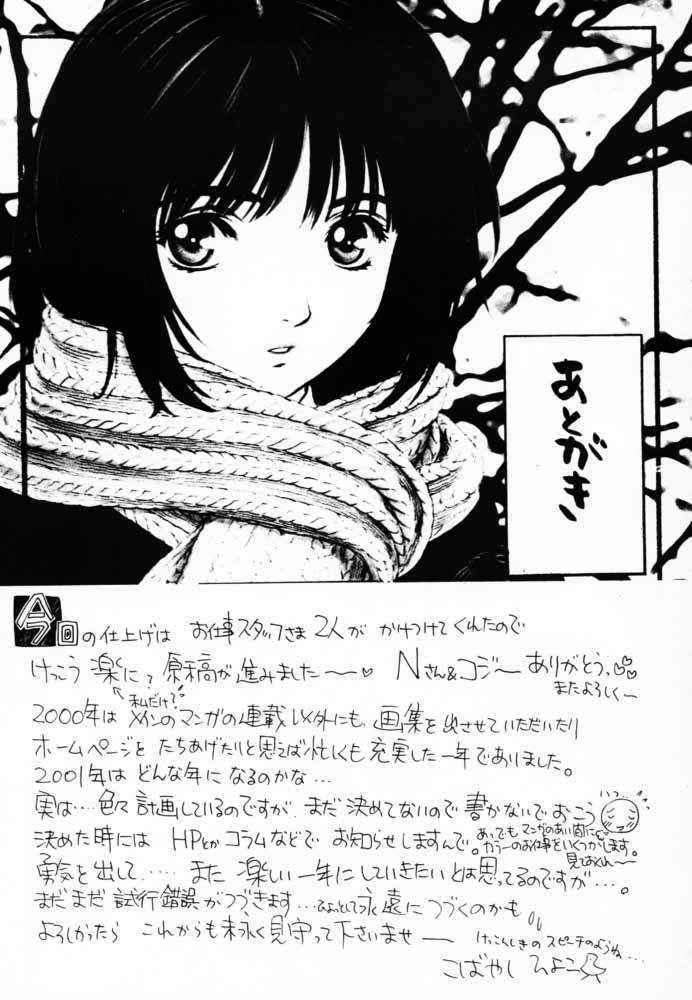 あとがき
今回の仕上げは お仕事スタッフさま2人が かけつけてくれたので
けっこう 楽に? 原稿が進みました〜〜♥ Nさん&コジー ありがとう。
またよろしく〜
私だけ?
2000年は メインのマンガの連載以外にも、画集を出させていただいたり
ホームページを たちあげたりと思えば忙しくも充実した一年でありました。
2001年は どんな年に なるのかな…
実は…色々計画しているのですが、まだ決めてないので 書かないでおこう
決めた時には HPとか コラムなどで お知らせしますんで。
あっでも マンガのあい間に
カラーのお仕事をいくつかします。
見ておくれ〜〜
勇気を出して…… また 楽しい一年に していきたい とは思ってるのですが…。
まだまだ 試行錯誤がつづきます…ひょっとして永遠に つづくのかも
よろしかったら これからも末永く見守って下さいませ ―
けっこんしきの スピーチのようね…
こばやし ひよこ